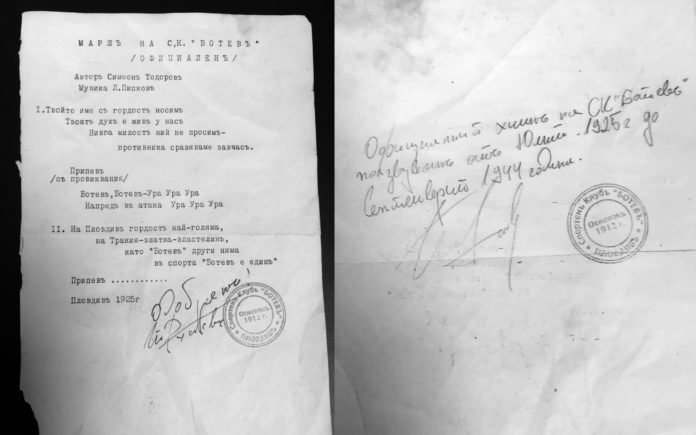 МАРШЪ НА С.К. "БОТЕВЪ"
/ОФИЦИАЛЕНЪ/
Авторъ Симеонъ Тодоровъ
Музика Л.Пипковъ
I.Твойто име съ гордость носим
Твоятъ духъ е живъ у насъ
Нивга милость ний не просимъ-
противника сразяваме завчасъ.
Припевъ
/съ провиквания/
Ботевъ,Ботевъ-Ура Ура Ура
Напредъ въ атака Ура Ура Ура
II. На Пловдивъ гордость най-голяма,
на Тракия-златна-властелинъ,
като "Ботевъ" други няма
въ спорта "Ботевъ е единъ"
Припевъ ............
Пловдивъ 1925г
Одобрено!
Спортенъ Клубъ "БОТЕВЪ"
Основанъ
1912 г.
ПЛОВДИВЪ
Официалният химнъ на СК "Ботевъ"
ползуванъ отъ Юлий 1925г до
септемврий 1944 година.
Спортенъ Клубъ "БОТЕВЪ"
Основанъ
1912 г.
ПЛОВДИВЪ